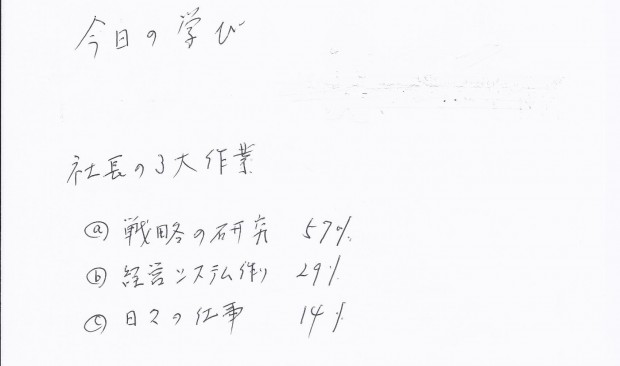 今日の学び
社長の3大作業
ⓐ 戦略の研究 57%
ⓑ 経営システム作り 29%
ⓒ 日々の仕事 14%